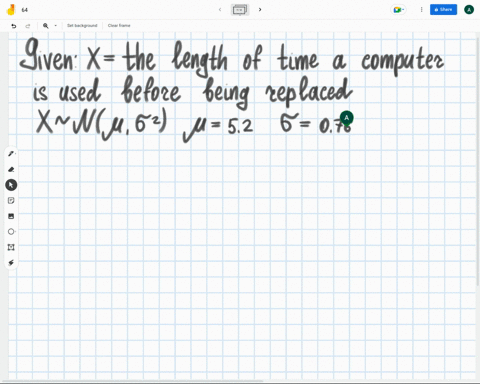 64
Set background
Clear frame
Share
A
Given: X = the length of time a computer
is used before being replaced
X ~ N(μ, σ²) μ = 5.2 σ = 0.7
A